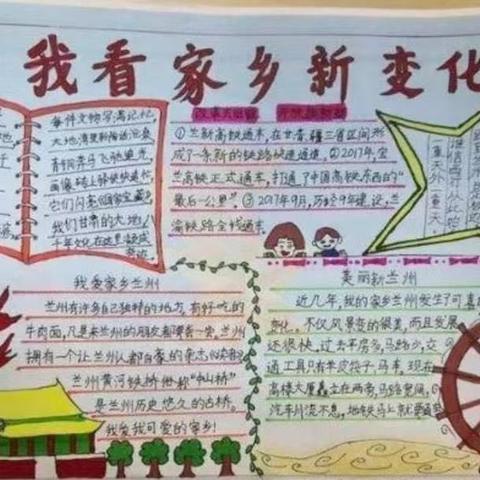 我看家乡新变化
每件文物写满记忆
大地湾里
青铜奔马飞驰
画像砖上驿使快递忙
它们闪亮
我们甘肃的大地
千年文化在这里
①兰新高铁通车,在甘、青、疆三省区间形
成了一条新的铁路快速通道。②2017年,宝
兰高铁正式通车,打通了中国高铁东西的“
最后一公里”。③2017年9月,历经9年建设,兰
渝铁路全线通车。
我爱家乡兰州
兰州有许多自己独特的地方。有好吃的
牛肉面,凡是来兰州的朋友都要尝一尝。兰州
拥有一个让兰州人都自豪的杂志《读者》
兰州黄河铁桥俗称“中山桥”
是兰州历史悠久的古桥。
我爱我可爱的家乡!
美丽新兰州
近几年,我的家乡兰州发生了可喜的
变化。不仅风景变的很美,而且发展
还很快。过去平房多,马路少,交
通工具只有羊皮筏子、马车。现在
高楼大厦矗立在两旁,马路宽阔,
汽车川流不息,地铁马上就要通